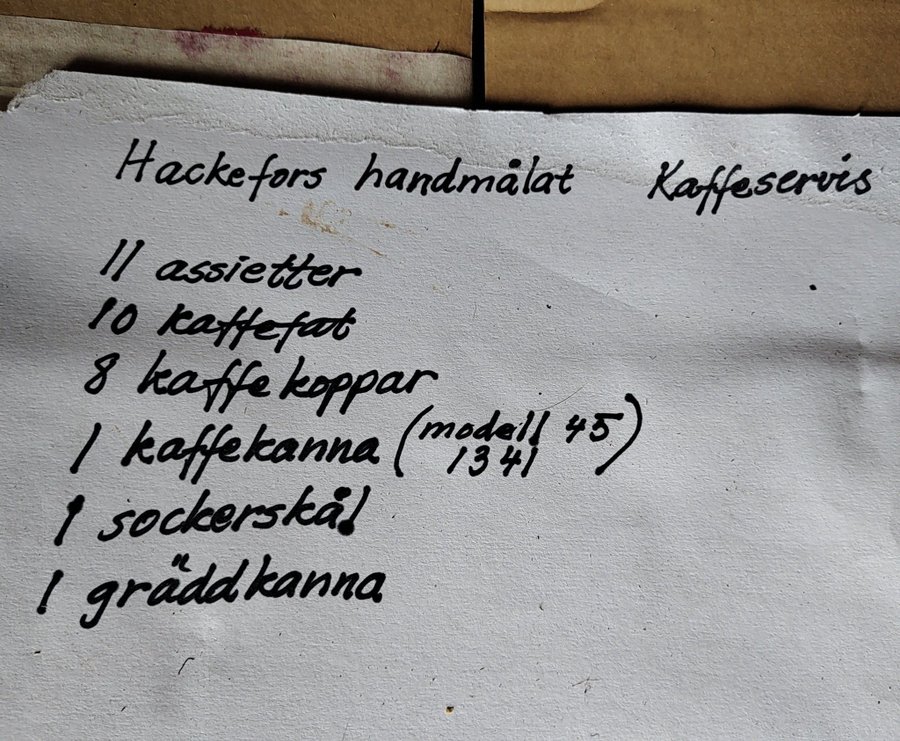 Hackefors handmålat Kaffeservis
11 assietter
10 kaffefat
8 kaffekoppar
1 kaffekanna (modell 45
1341)
1 sockerskål
1 gräddkanna